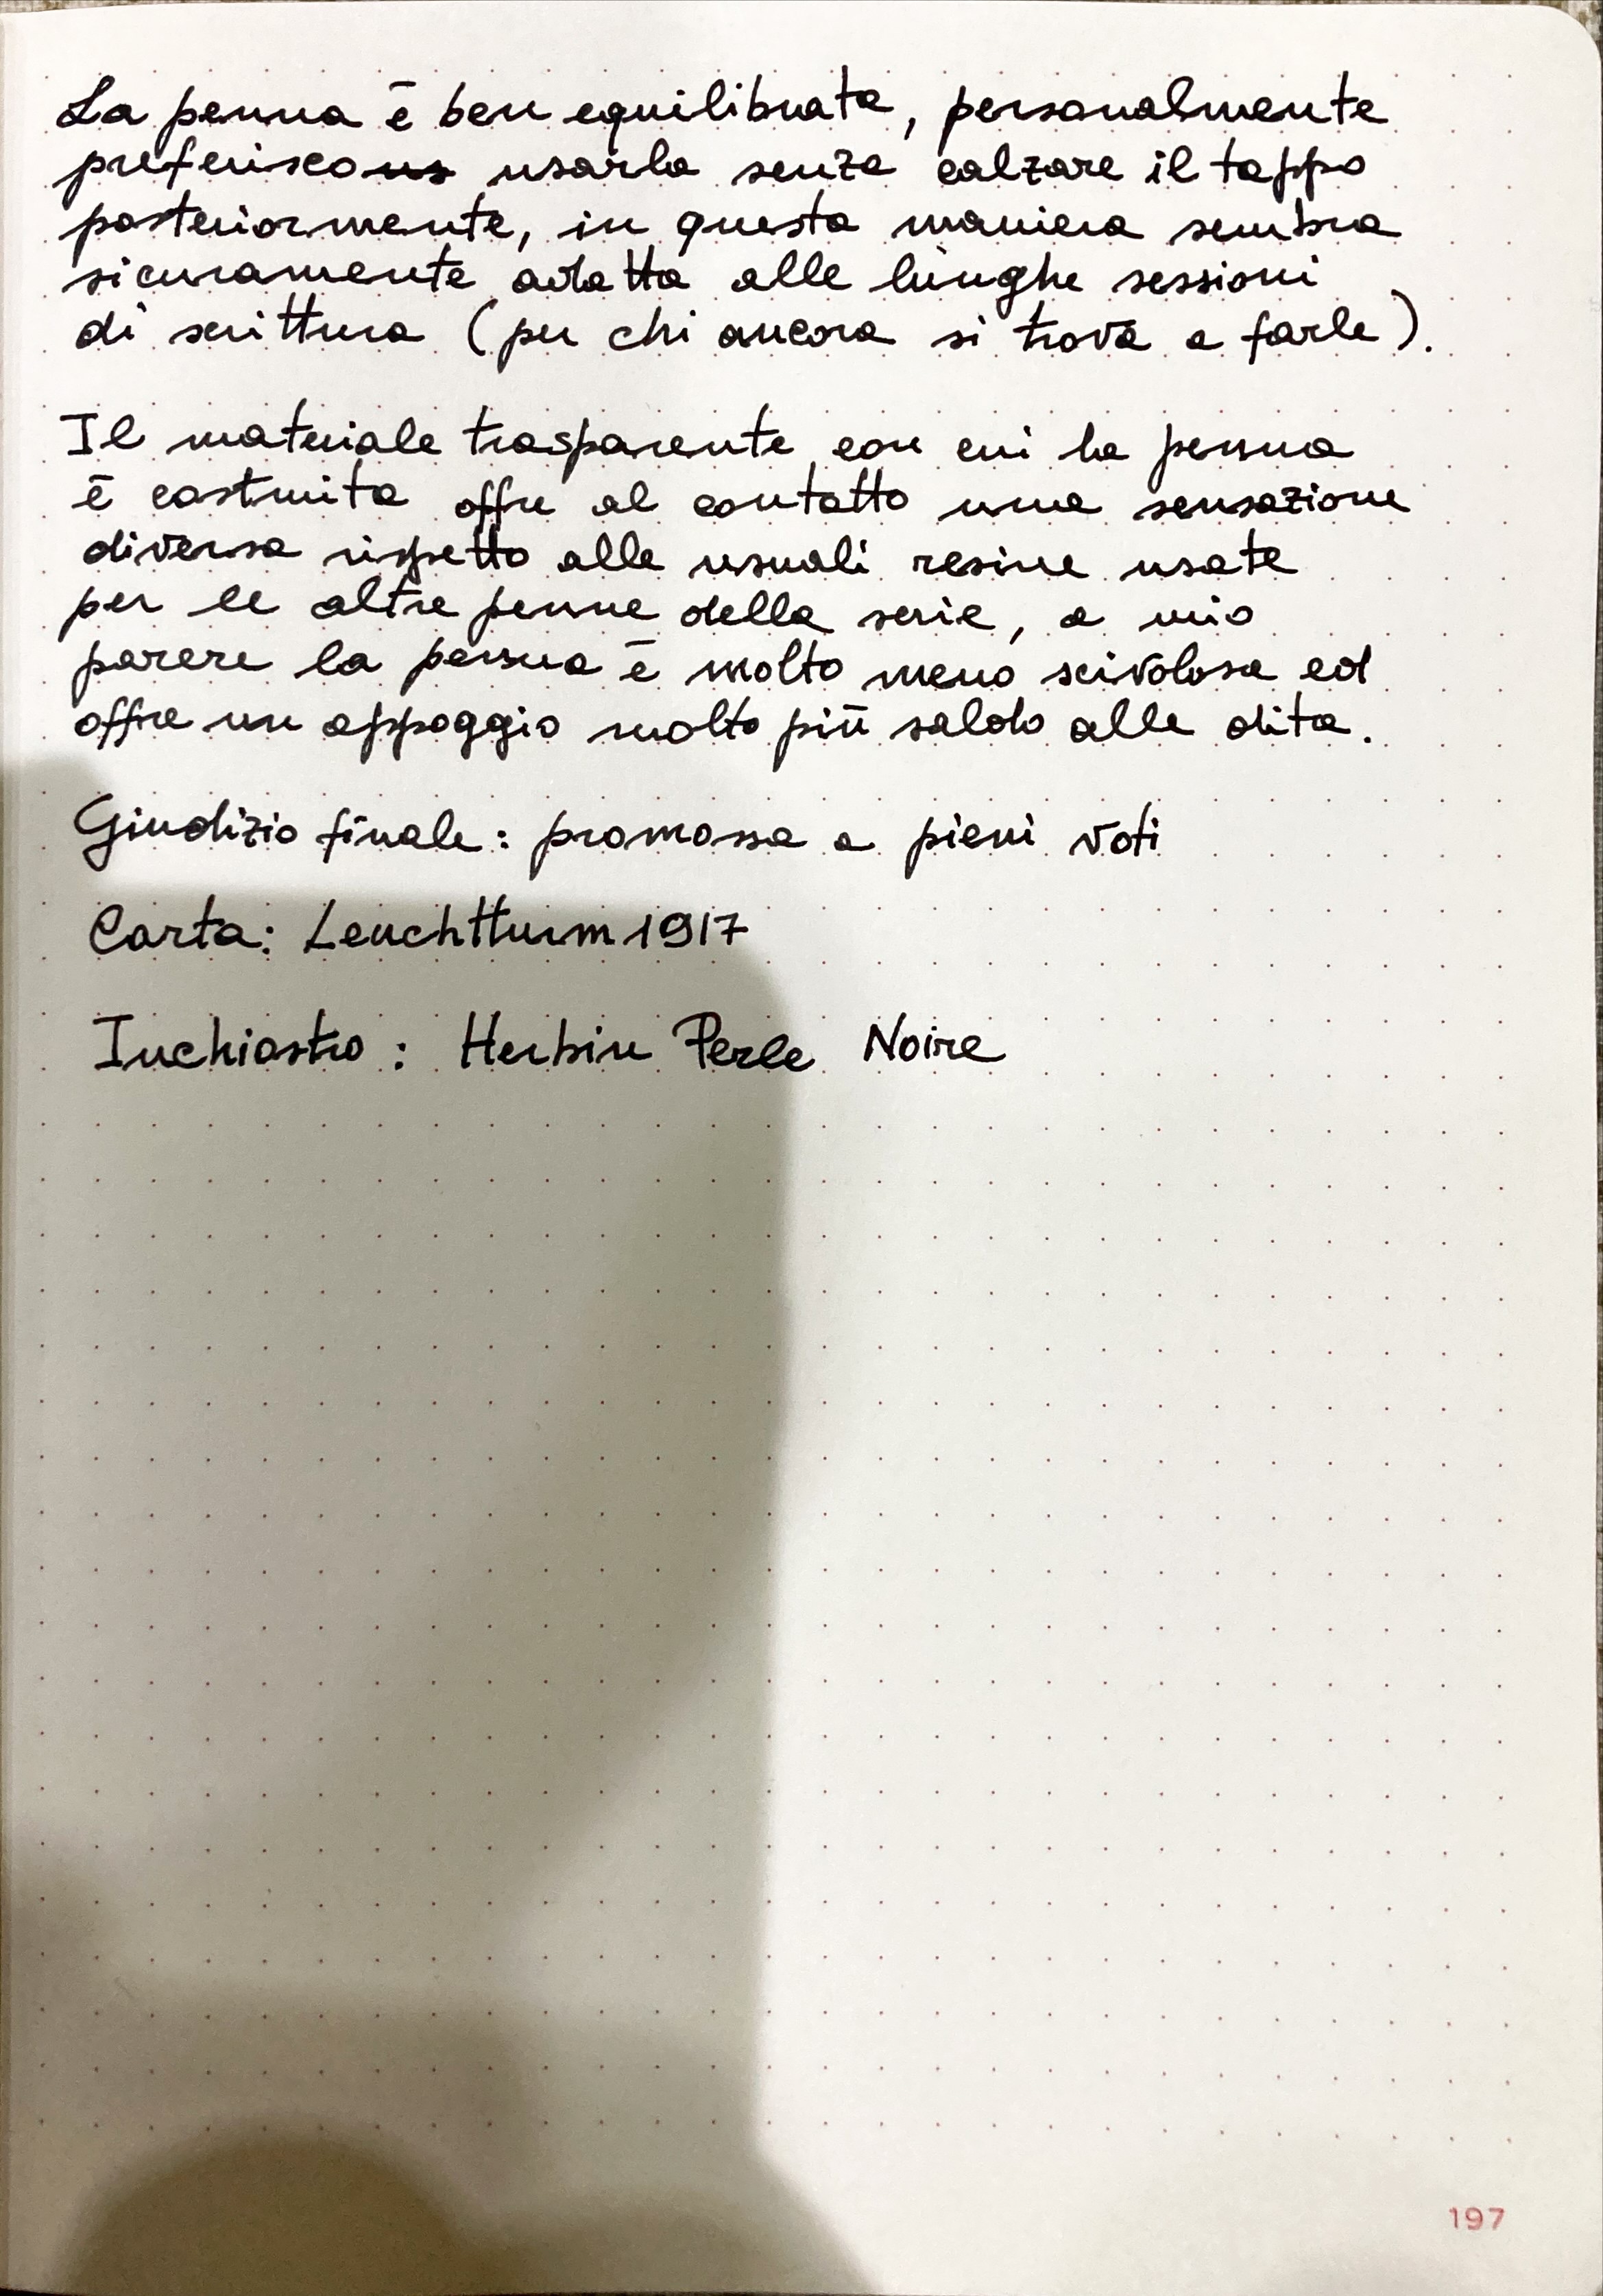 La penna è ben equilibrata, personalmente
preferisco usarla senza calzare il tappo
posteriormente, in questa maniera sembra
sicuramente adatta alle lunghe sessioni
di scrittura (per chi ancora si trova a farle).
Il materiale trasparente con cui la penna
è costruita offre al contatto una sensazione
diversa rispetto alle usuali resine usate
per le altre penne della serie, a mio
parere la penna è molto meno scivolosa ed
offre un appoggio molto più saldo alle dita.
Giudizio finale: promossa a pieni voti
Carta: Leuchtturm1917
Inchiostro: Herbin Perle Noire
197